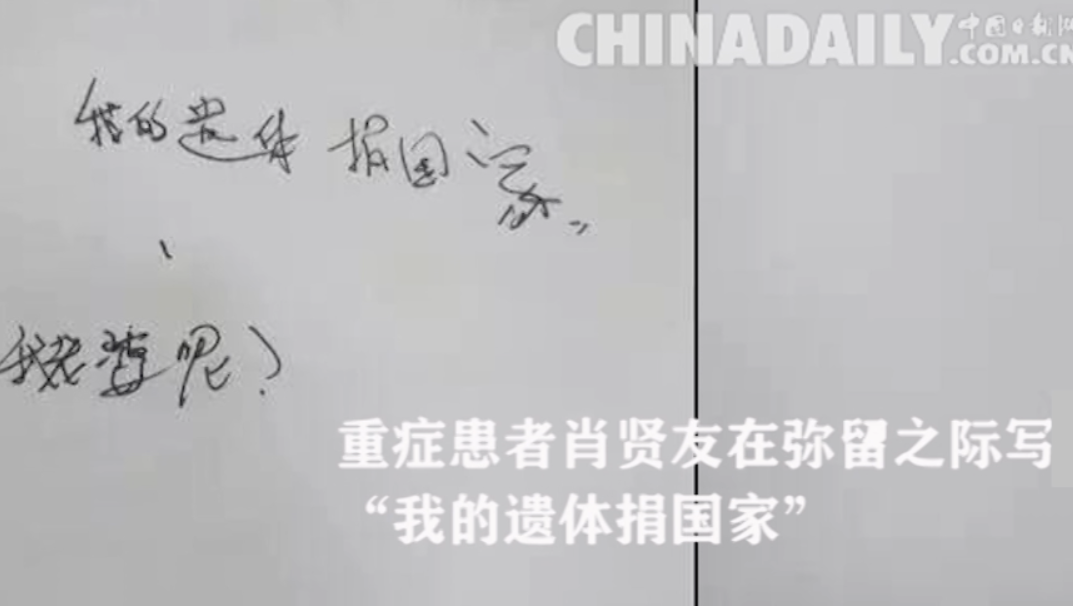 CHINADAILY 中国日报网
.COM.CN
我的遗体捐国家。
我老婆呢？
重症患者肖贤友在弥留之际写
“我的遗体捐国家”